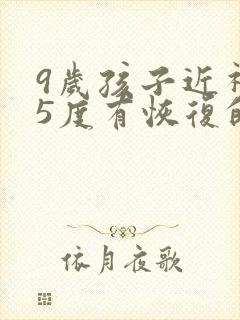 9歲孩子近視
5度有恢復的
依月夜歌